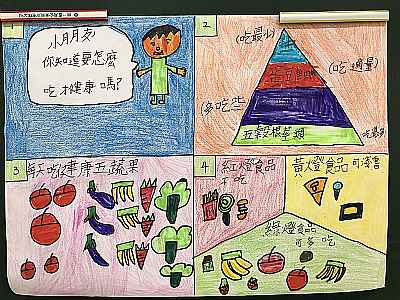 1
小朋友
你知道要怎麼
吃才健康嗎?
2
(吃最少)
(吃適量)
(多吃些
五穀根莖類
吃最多
3
每天吃健康五蔬果
4
紅燈食品
不吃
黃燈食品 可淺嘗
綠燈食品
可多吃